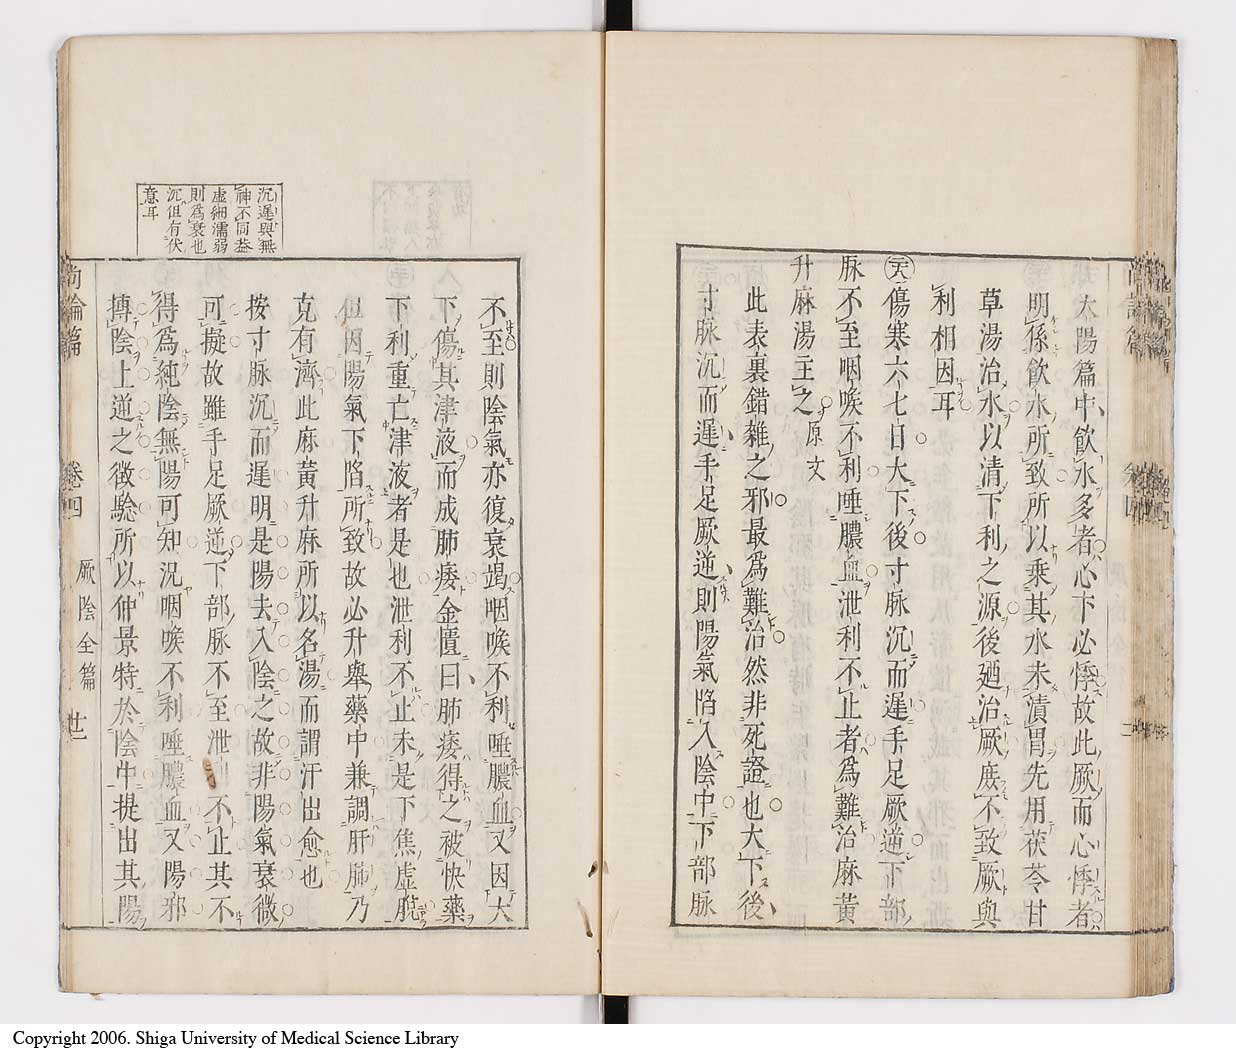 太陽篇中飮水多者心下必悸故此厥而心悸者
明係飮水所致所以乘其水未漬胃先用茯苓甘
草湯治水以清下利之源後廼治厥庶不致厥與
利相因耳
傷寒六七日大下後寸脉沉而遲手足厥逆下部
脉不至咽喉不利唾膿血泄利不止者爲難治麻黃
升麻湯主之原文
此表裏錯雜之邪最爲難治然非死證也大下後
寸脉沉而遲手足厥逆則陽氣陷入陰中下部脉
沉遲與無
神不同葢
虚細濡弱
則爲衰也
沉但有伏
意耳
不至則陰氣亦復衰竭咽喉不利唾膿血又因大
下傷其津液而成肺痿金匱曰肺痿得之被快藥
下利重亡津液者是也泄利不止未是下焦虛脫
但因陽氣下陷所致故必升舉藥中兼調肝肺乃
克有濟此麻黃升麻所以名湯而謂汗出愈也
按寸脉沉而遲明是陽去入陰之故非陽氣衰微
可擬故雖手足厥逆下部脉不至泄利不止其不
得爲純陰無陽可知況咽喉不利唾膿血又陽邪
摶陰上逆之徵驗所以仲景特於陰中提出其陽
尚論篇 卷四 厥陰全篇 廿二